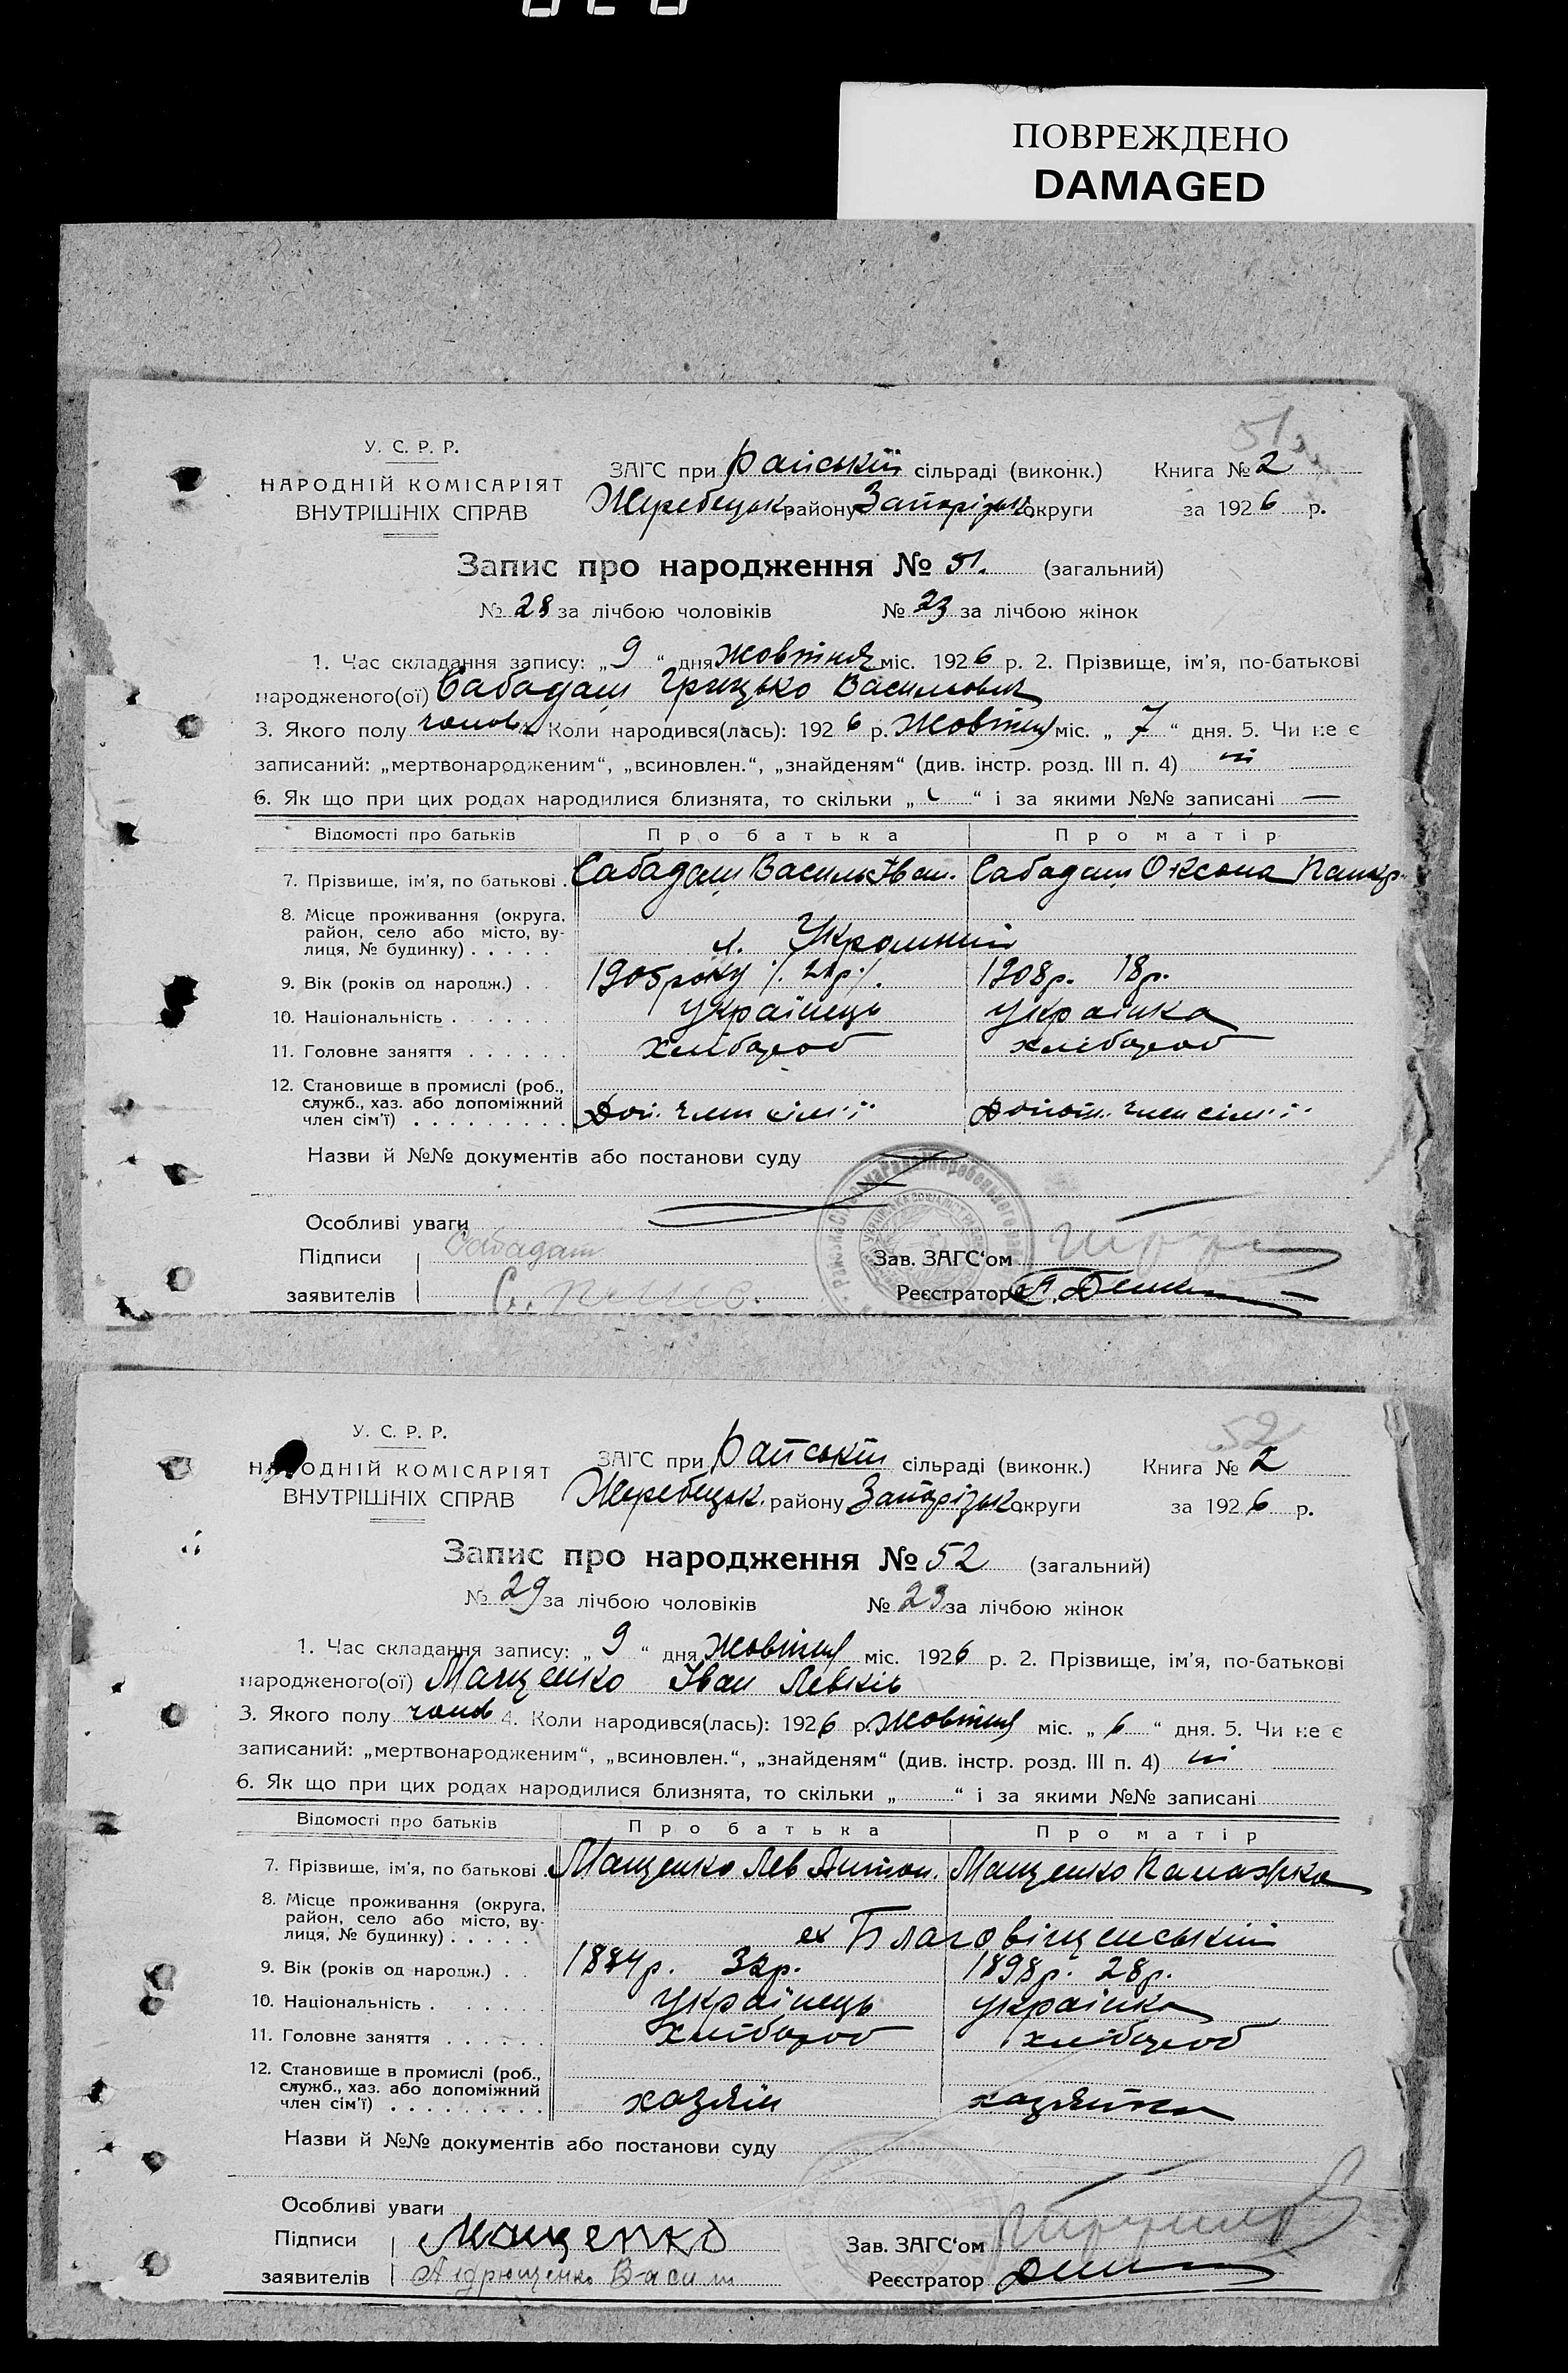 ПОВРЕЖДЕНО
DAMAGED
51
У. С. Р. Р.
НАРОДНІЙ КОМІСАРІЯТ
ВНУТРІШНІХ СПРАВ
ЗАГС при Райській сільраді (виконк.) Книга № 2
Жеребецьк. району Запорізьк. округи за 1926 р.
Запис про народження № 51. (загальний)
№ 28 за лічбою чоловіків № 23 за лічбою жінок
1. Час складання запису: „ 9 “ дня жовтня міс. 1926 р. 2. Прізвище, ім’я, по-батькові
народженого(ої) Сабадаш Грицько Васильович
3. Якого полу чолов. Коли народився(лась): 1926 р. жовтня міс. „ 7 “ дня. 5. Чи не є
записаний: „мертвонародженим“, „всиновлен.“, „знайденям“ (див. інстр. розд. III п. 4) ні
6. Як що при цих родах народилися близнята, то скільки „ “ і за якими №№ записані —
Відомості про батьків Про батька Про матір
7. Прізвище, ім’я, по батькові . Сабадаш Василь Іван. Сабадаш Оксана Панкр.
8. Місце проживання (округа,
район, село або місто, ву-
лиця, № будинку) . . . . . Укромний
9. Вік (років од народж.) . . 1905 року /. 21р./. 1908р. 18р.
10. Національність . . . . . . українець українка
11. Головне заняття . . . . . . хлібороб хлібороб
12. Становище в промислі (роб.,
служб., хаз. або допоміжний
член сім’ї) . . . . . . . . . Доп. член сім'ї допом. член сім'ї
Назви й №№ документів або постанови суду
Особливі уваги
Підписи Сабадаш Зав. ЗАГС‘ом
заявителів Реєстратор
52
У. С. Р. Р.
НАРОДНІЙ КОМІСАРІЯТ
ВНУТРІШНІХ СПРАВ
ЗАГС при Райській сільраді (виконк.) Книга № 2
Жеребецьк. району Запорізьк. округи за 1926 р.
Запис про народження № 52 (загальний)
№ 29 за лічбою чоловіків № 23 за лічбою жінок
1. Час складання запису: „ 9 “ дня жовтня міс. 1926 р. 2. Прізвище, ім’я, по-батькові
народженого(ої) Мащенко Іван Левків
3. Якого полу чолов 4. Коли народився(лась): 1926 р. жовтня міс. „ 6 “ дня. 5. Чи не є
записаний: „мертвонародженим“, „всиновлен.“, „знайденям“ (див. інстр. розд. III п. 4) ні
6. Як що при цих родах народилися близнята, то скільки „ “ і за якими №№ записані
Відомості про батьків Про батька Про матір
7. Прізвище, ім’я, по батькові . Мащенко Лев Антон. Мащенко Палажка
8. Місце проживання (округа,
район, село або місто, ву-
лиця, № будинку) . . . . . Благовіщенський
9. Вік (років од народж.) . . 1884р. 1898р. 28р.
10. Національність . . . . . . українець українка
11. Головне заняття . . . . . хлібороб хлібороб
12. Становище в промислі (роб.,
служб., хаз. або допоміжний
член сім’ї) . . . . . . . . . хазяїн хазяйка
Назви й №№ документів або постанови суду
Особливі уваги
Підписи Мащенко Зав. ЗАГС‘ом
заявителів Андрющенко Васил Реєстратор